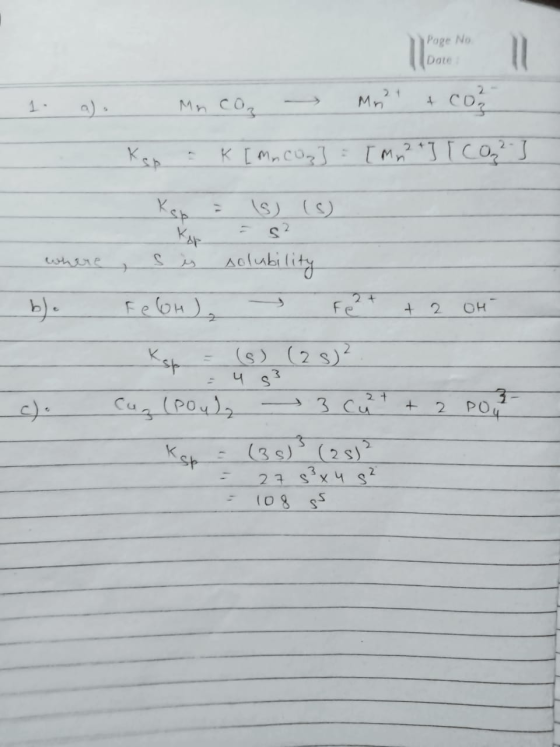 Page No.
Date :
1. a). MnCO₃ → Mn²⁺ + CO₃²⁻
Ksp = K [MnCO₃] = [Mn²⁺] [CO₃²⁻]
Ksp = (s) (s)
Ksp = s²
where, s is solubility
b). Fe(OH)₂ → Fe²⁺ + 2 OH⁻
Ksp = (s) (2s)²
= 4 s³
c). Cu₃(PO₄)₂ → 3 Cu²⁺ + 2 PO₄³⁻
Ksp = (3s)³ (2s)²
= 27 s³ x 4 s²
= 108 s⁵